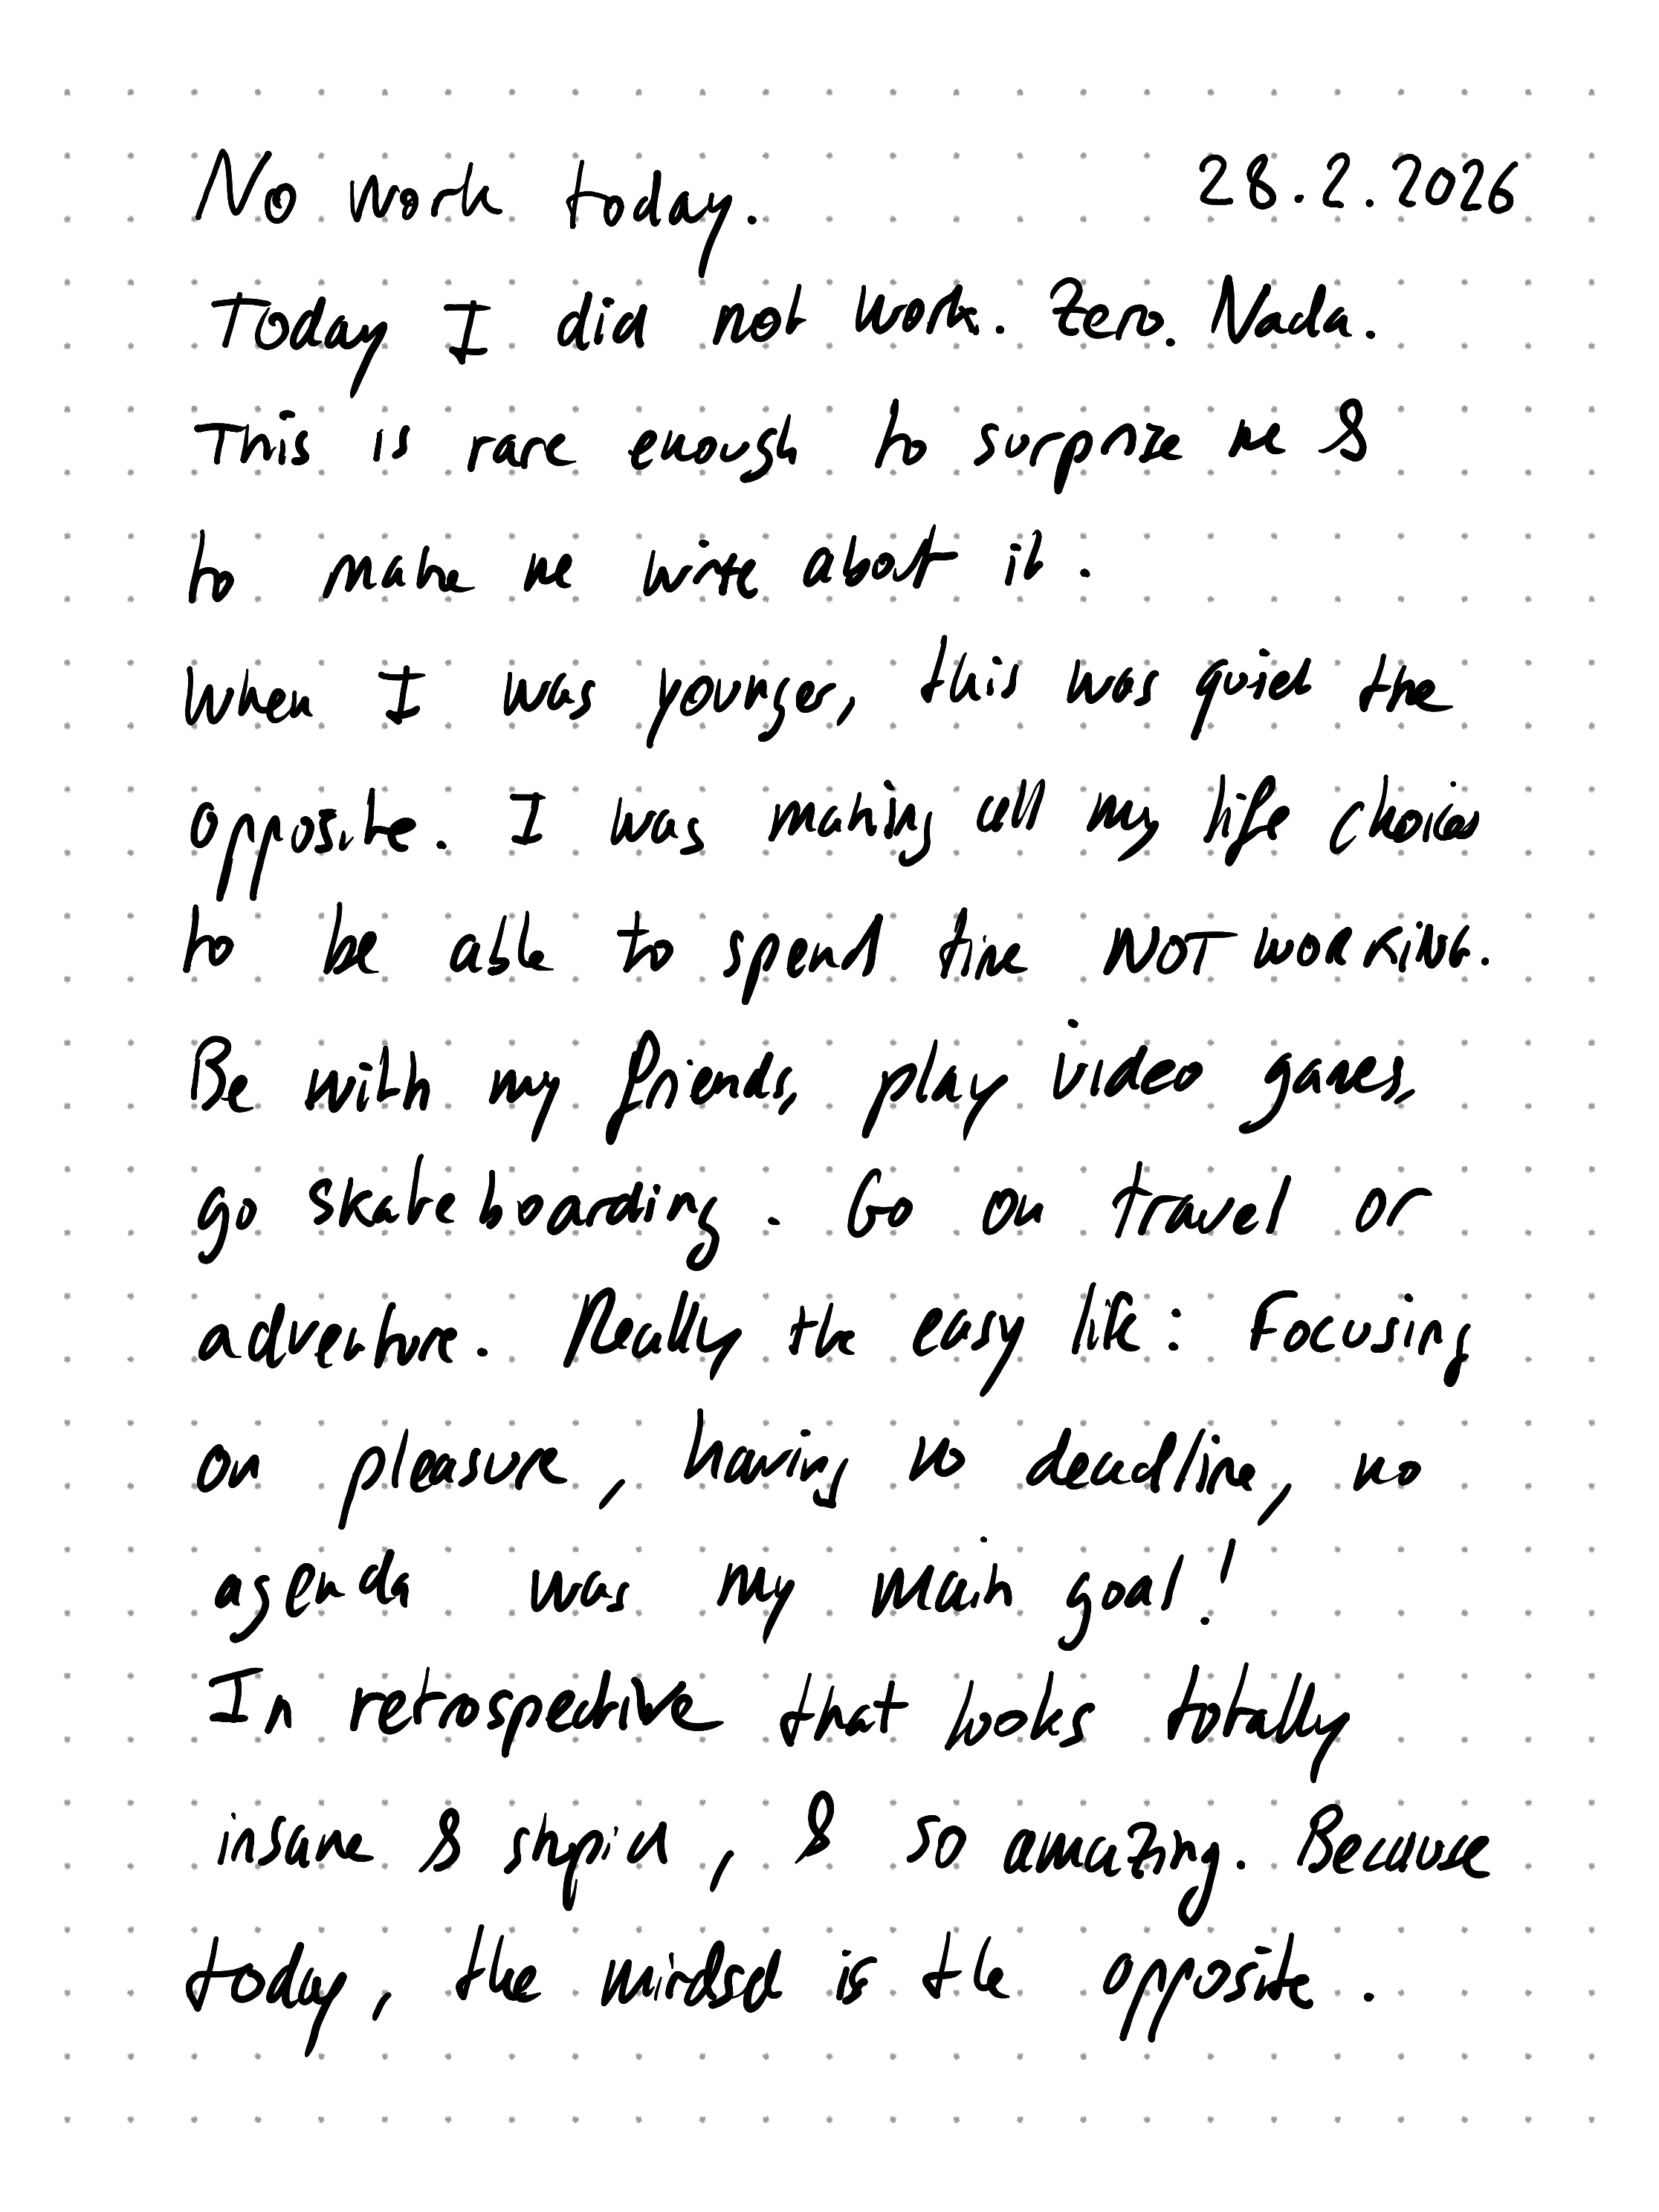 No work today. 28.2.2026
Today I did not work. Zero. Nada.
This is rare enough to surprize me &
to make me write about it.
When I was younger, this was quiet the
opposite. I was making all my life choices
to be able to spend time NOT WORKING.
Be with my friends, play video games,
go skateboarding. Go on travel or
adventure. Really the easy life: Focusing
on pleasure, having no deadline, no
agenda was my main goal!
In retrospective that looks totally
insane & stupid, & so amazing. Because
today, the mindset is the opposite.